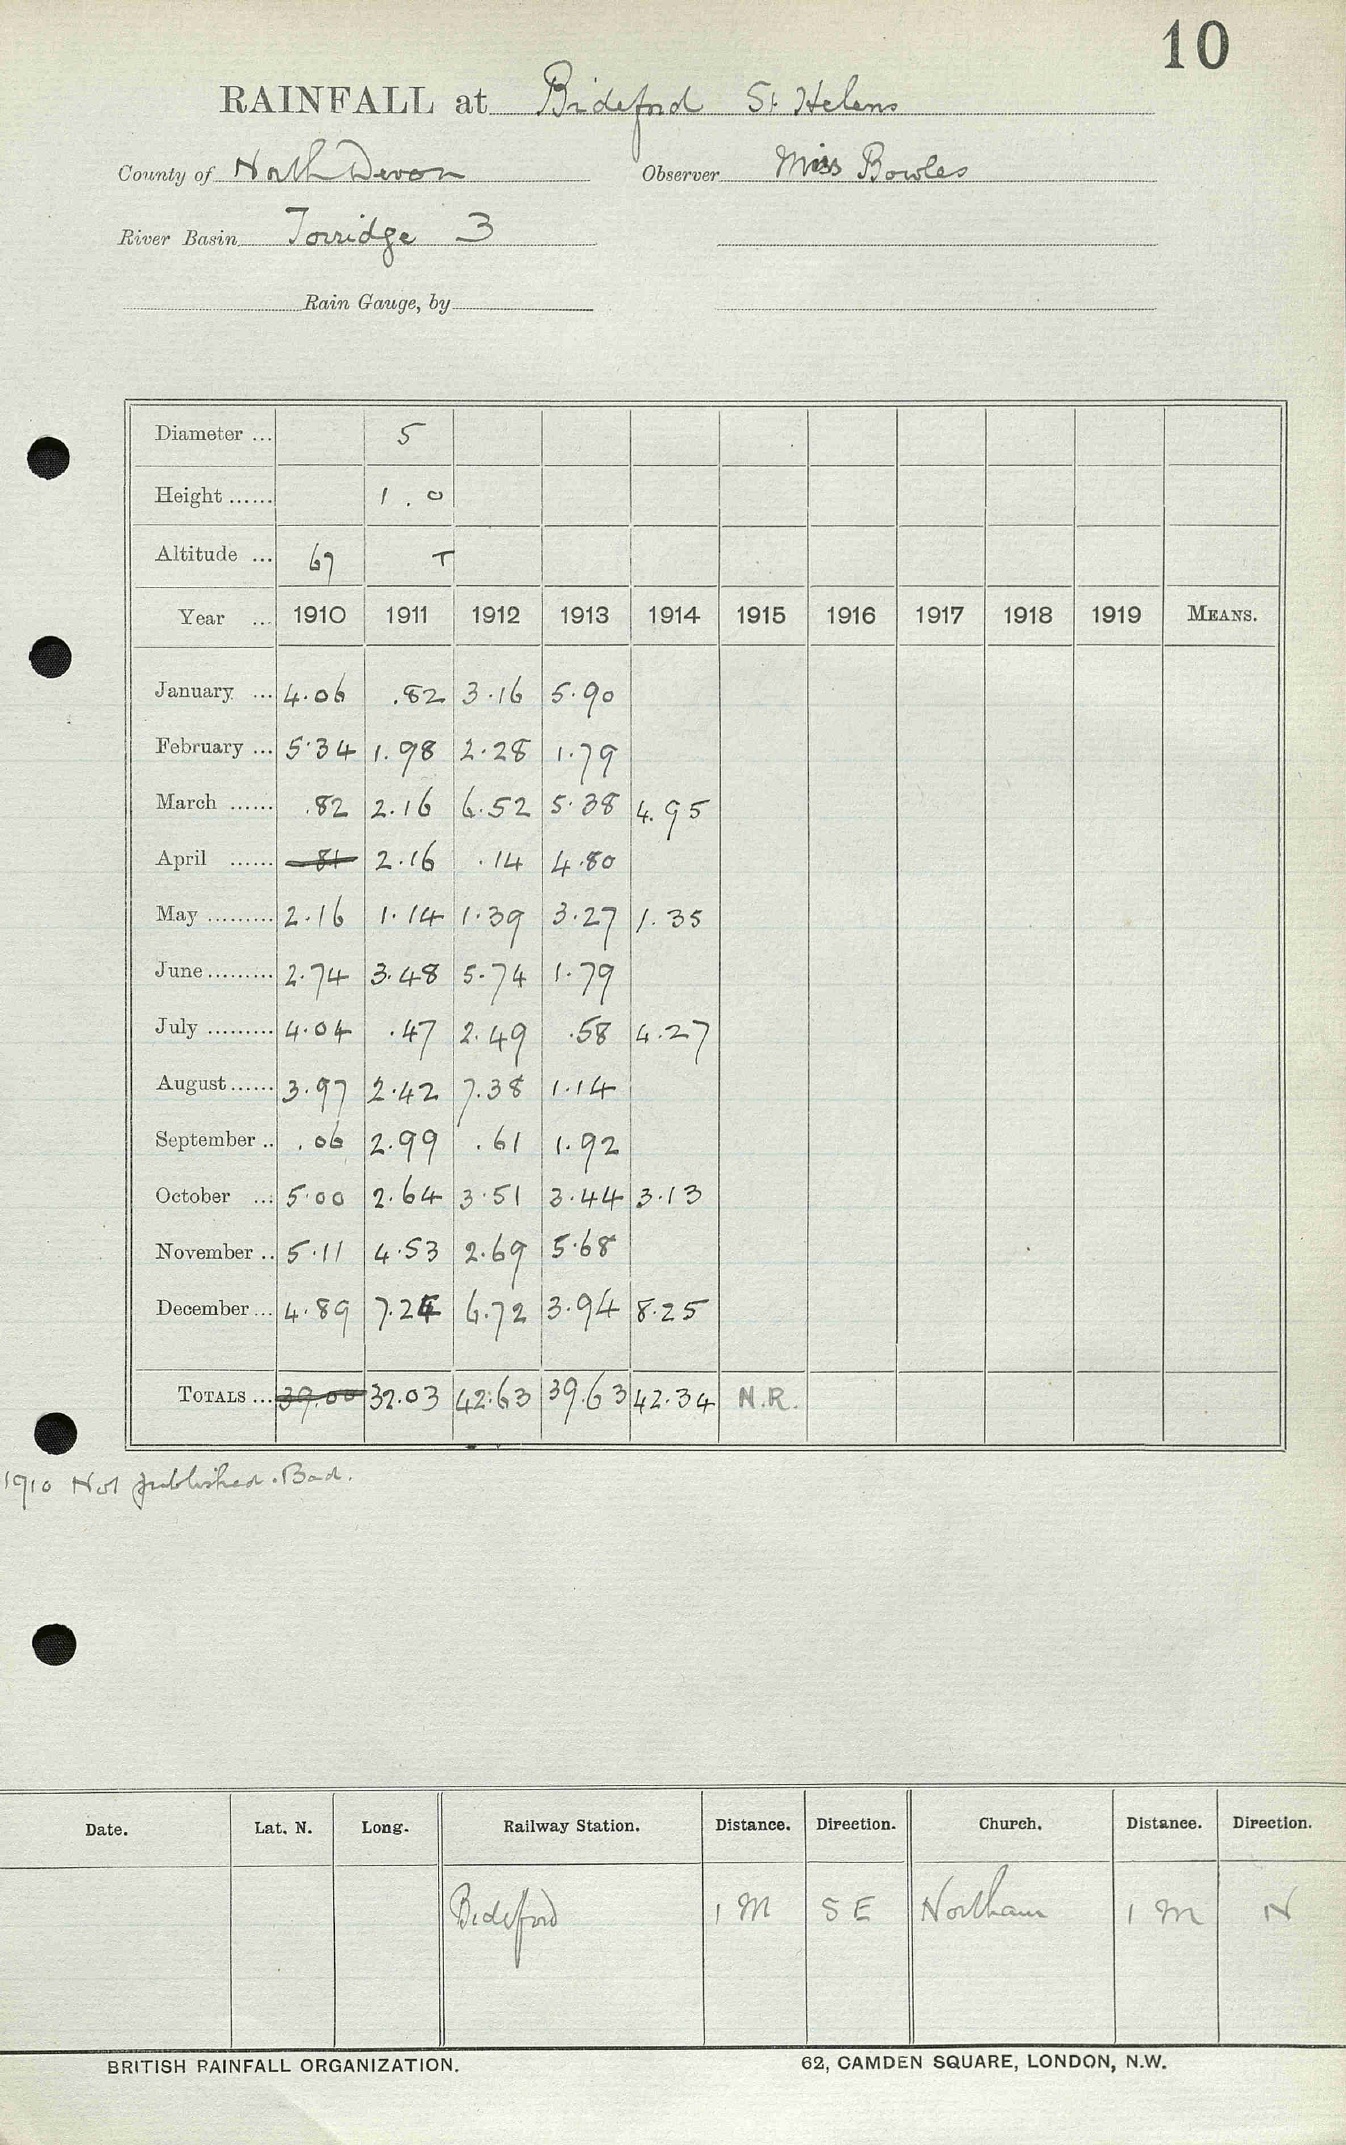 10
RAINFALL at Bideford St Helens
County of North Devon Observer Miss Bowles
River Basin Torridge 3
Rain Gauge, by
Diameter ... 5
Height ...... 1.0
Altitude ... 67 T
Year ... 1910 1911 1912 1913 1914 1915 1916 1917 1918 1919 MEANS.
January ... 4.06 .82 3.16 5.90
February ... 5.34 1.98 2.28 1.79
March ...... .82 2.16 6.52 5.38 4.95
April ...... .81 2.16 .14 4.80
May ......... 2.16 1.14 1.39 3.27 1.35
June ......... 2.74 3.48 5.74 1.79
July ......... 4.04 .47 2.49 .58 4.27
August ...... 3.97 2.42 7.38 1.14
September .. .06 2.99 .61 1.92
October ... 5.00 2.64 3.51 3.44 3.13
November .. 5.11 4.53 2.69 5.68
December ... 4.89 7.24 6.72 3.94 8.25
TOTALS ... 39.00 32.03 42.63 39.63 42.34 N.R.
1910 Not published. Bad.
Date. Lat. N. Long. Railway Station. Distance. Direction. Church. Distance. Direction.
Bideford 1 M S E Northam 1 M N
BRITISH RAINFALL ORGANIZATION. 62, CAMDEN SQUARE, LONDON, N.W.